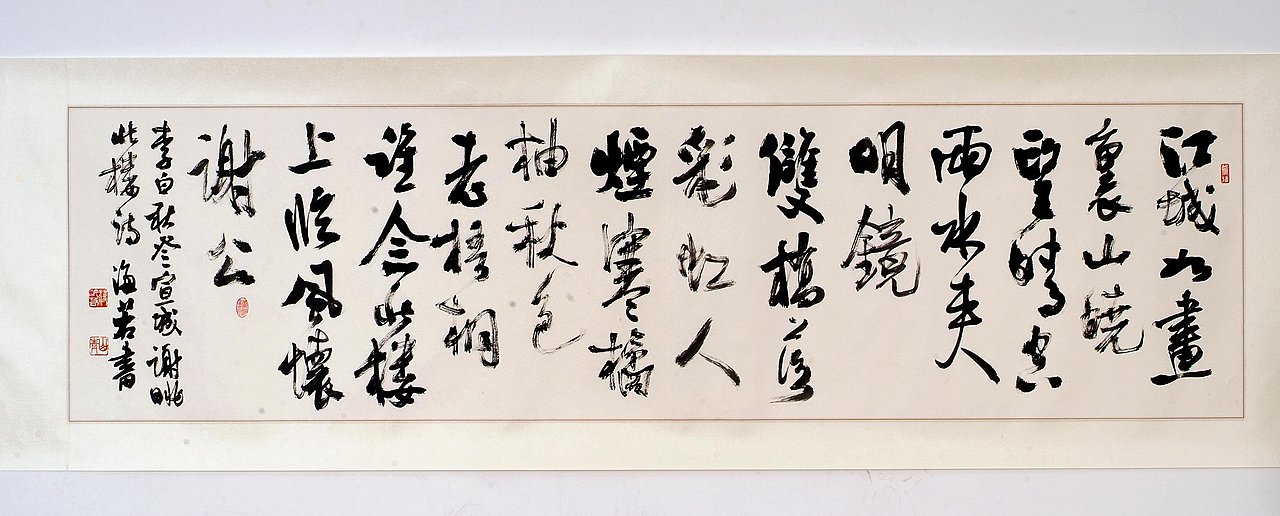 江城如畫
裏山曉
望晴空
兩水夾
明鏡
雙橋落
彩虹人
煙寒橘
柚秋色
老梧桐
誰念北樓
上臨風懷
謝公
李白秋登宣城謝眺
北樓詩 海若書